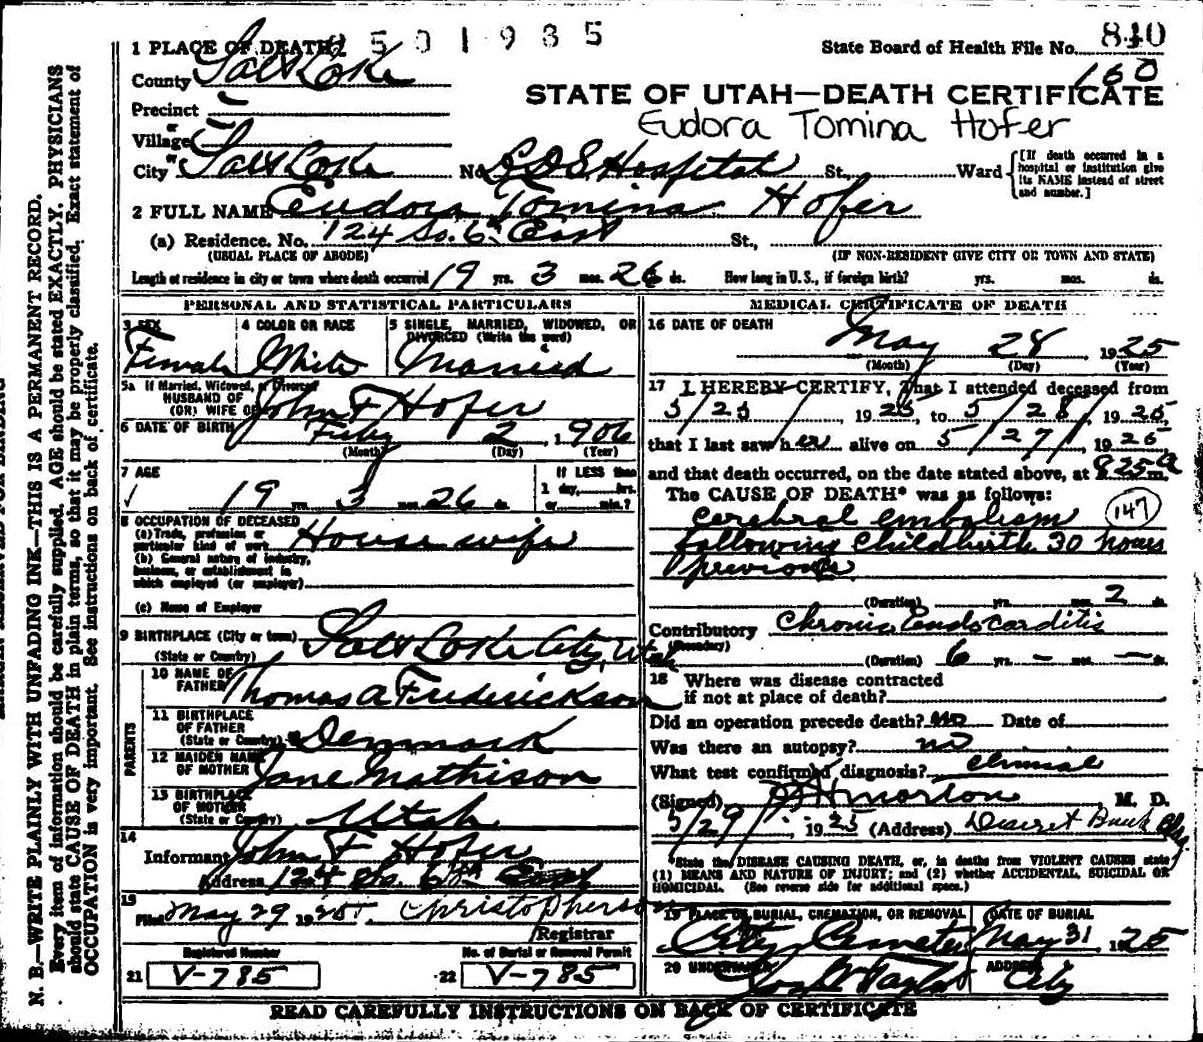 1 PLACE OF DEATH 2501935
State Board of Health File No. 840
160
County Salt Lake
STATE OF UTAH—DEATH CERTIFICATE
Precinct
Eudora Tomina Hofer
or
Village
or
City Salt Lake No. LDS Hospital St., Ward
[If death occurred in a hospital or institution give its NAME instead of street and number.]
2 FULL NAME Eudora Tomina Hofer
(a) Residence. No. 124 So. 6th East St.,
(USUAL PLACE OF ABODE) (IF NON-RESIDENT GIVE CITY OR TOWN AND STATE)
Length of residence in city or town where death occurred 19 yrs. 3 mos. 26 ds. How long in U. S., if foreign birth? yrs. mos. ds.
PERSONAL AND STATISTICAL PARTICULARS
3 SEX 4 COLOR OR RACE 5 SINGLE, MARRIED, WIDOWED, OR
DIVORCED (Write the word)
Female White Married
5a If Married, Widowed, or Divorced
HUSBAND OF
(OR) WIFE OF John F Hofer
6 DATE OF BIRTH Feby 2, 1906
(Month) (Day) (Year)
7 AGE If LESS than
1 day, hrs.
19 yrs. 3 mos. 26 ds. or min.?
8 OCCUPATION OF DECEASED
(a) Trade, profession or
particular kind of work House wife
(b) General nature of industry,
business, or establishment in
which employed (or employer)
(c) Name of Employer
9 BIRTHPLACE (City or town)
(State or Country) Salt Lake City, Utah
PARENTS
10 NAME OF
FATHER Thomas A Frederickson
11 BIRTHPLACE
OF FATHER
(State or Country) Denmark
12 MAIDEN NAME
OF MOTHER Jane Mathison
13 BIRTHPLACE
OF MOTHER
(State or Country) Utah
14
Informant John F Hofer
Address 124 So. 6th East
15
Filed May 29 1925 Christopherson
Registrar
Registered Number No. of Burial or Removal Permit
21 V-785 22 V-785
MEDICAL CERTIFICATE OF DEATH
16 DATE OF DEATH
May 28, 1925
(Month) (Day) (Year)
17 I HEREBY CERTIFY, That I attended deceased from
5/25/ 1925, to 5/28/, 1925
that I last saw her alive on 5/27/, 1925
and that death occurred, on the date stated above, at 825 a m.
The CAUSE OF DEATH* was as follows:
cerebral embolism 147
following childbirth 30 hours
previous
(Duration) yrs. mos. 2 ds.
Contributory Chronic Endocarditis
(Secondary)
(Duration) 6 yrs. – mos. – ds.
18 Where was disease contracted
if not at place of death?
Did an operation precede death? no Date of
Was there an autopsy? no
What test confirmed diagnosis? clinical
(Signed) Morton, M. D.
5/29/, 1925 (Address) Deseret Bank Bldg
*State the DISEASE CAUSING DEATH, or, in deaths from VIOLENT CAUSES state
(1) MEANS AND NATURE OF INJURY; and (2) whether ACCIDENTAL, SUICIDAL OR
HOMICIDAL. (See reverse side for additional space.)
19 PLACE OF BURIAL, CREMATION, OR REMOVAL DATE OF BURIAL
City Cemetery May 31 1925
20 UNDERTAKER ADDRESS
Taylor City
READ CAREFULLY INSTRUCTIONS ON BACK OF CERTIFICATE
N. B.—WRITE PLAINLY WITH UNFADING INK—THIS IS A PERMANENT RECORD.
Every item of information should be carefully supplied. AGE should be stated EXACTLY. PHYSICIANS
should state CAUSE OF DEATH in plain terms, so that it may be properly classified. Exact statement of
OCCUPATION is very important. See instructions on back of certificate.